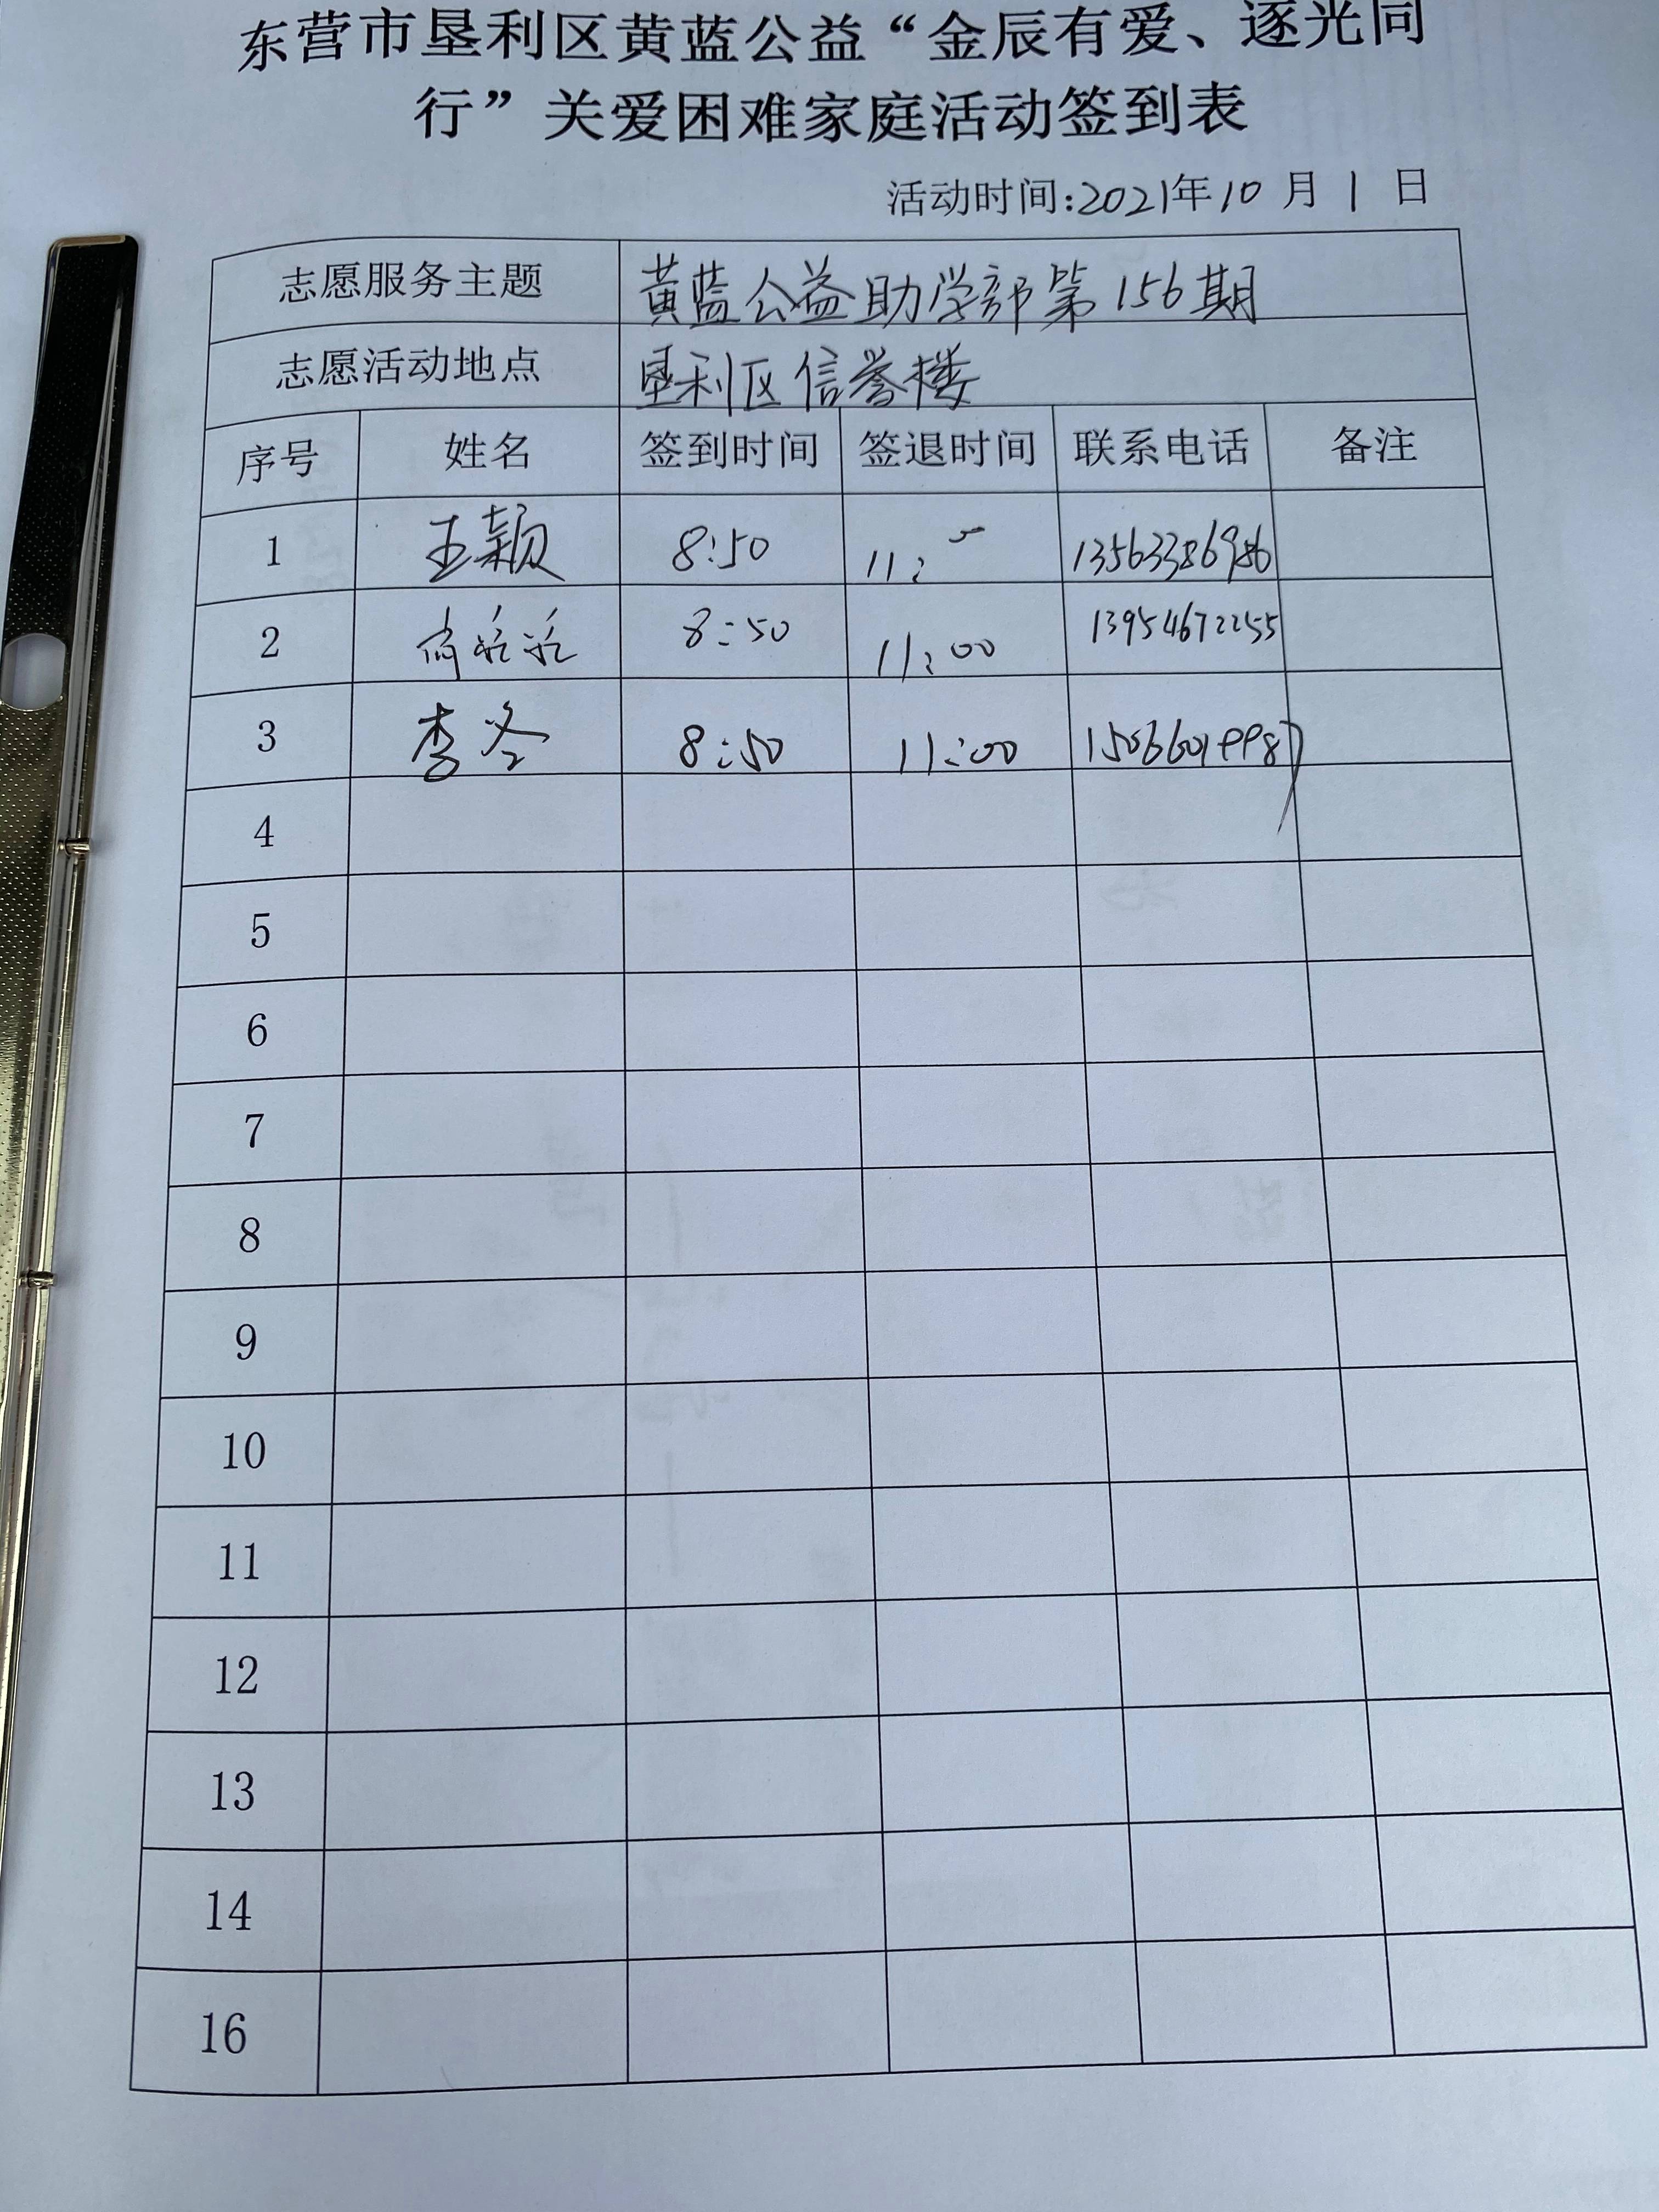 东营市垦利区黄蓝公益“金辰有爱、逐光同
行”关爱困难家庭活动签到表
活动时间:2021年10月1日
志愿服务主题 黄蓝公益助学部第156期
志愿活动地点 垦利区信誉楼
序号 姓名 签到时间 签退时间 联系电话 备注
1 王颖 8:50 11: 13563386986
2 8:50 11:00 13954672255
3 李冬 8:50 11:00
4
5
6
7
8
9
10
11
12
13
14
16